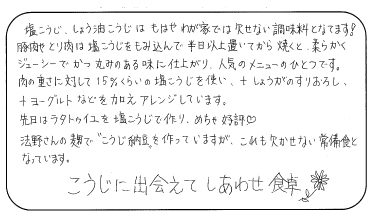 塩こうじ、しょう油こうじは もはや わが家では 欠せない 調味料となってます!
豚肉や とり肉は 塩こうじをもみ込んで 半日以上置いてから 焼くと、柔らかく
ジューシーで かつ 丸みのある味に仕上がり、人気のメニューのひとつです。
肉の重さに対して 15%くらいの 塩こうじを使い、+しょうがのすりおろし、
+ヨーグルト などを加え アレンジしています。
先日は ラタトゥイユを 塩こうじで作り、めちゃ好評♡
法野さんの麹で"こうじ納豆"を作っていますが、これも欠かせない 常備食と
なっています。
こうじに出会えて しあわせ 食卓